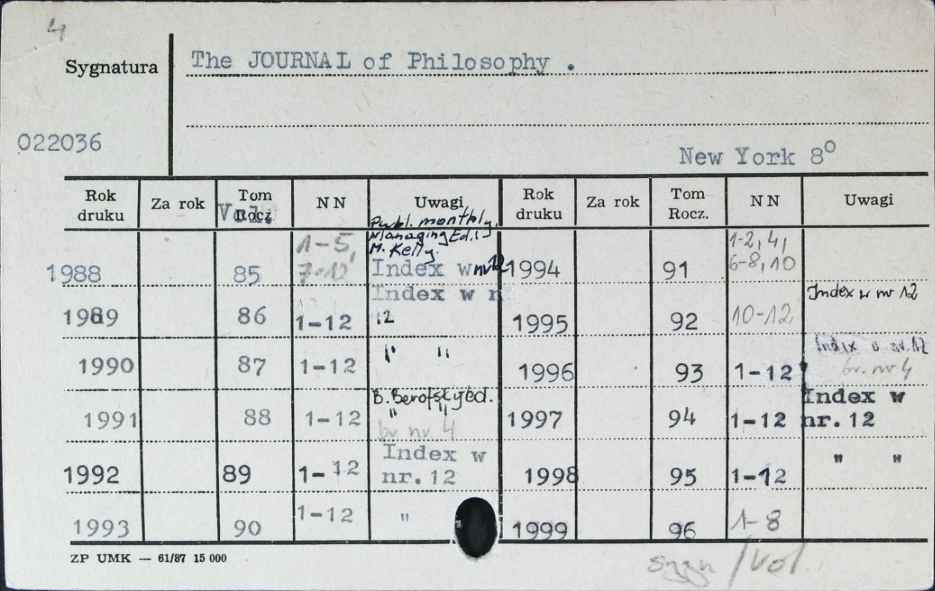 4
Sygnatura
The JOURNAL of Philosophy .
022036
New York 8°
Rok druku Za rok Tom Rocz. Vol. N N Uwagi Rok druku Za rok Tom Rocz. N N Uwagi
Publ. monthly.
Managing Ed.:
M. Kelly.
1988 85 1-5, 7-12 Index w nr 12
1989 86 1-12 Index w n 12
1990 87 1-12 " "
B. Berofsky ed.
1991 88 1-12 " " br nr. 4
1992 89 1-12 Index w nr. 12
1993 90 1-12 "
1994 91 1-2, 4, 6-8, 10
1995 92 10-12 Index w nr 12
1996 93 1-12 Index w nr. 12 br. nr 4
1997 94 1-12 Index w nr. 12
1998 95 1-12 " "
1999 96 1-8
ZP UMK — 61/87 15 000
sygn /vol.